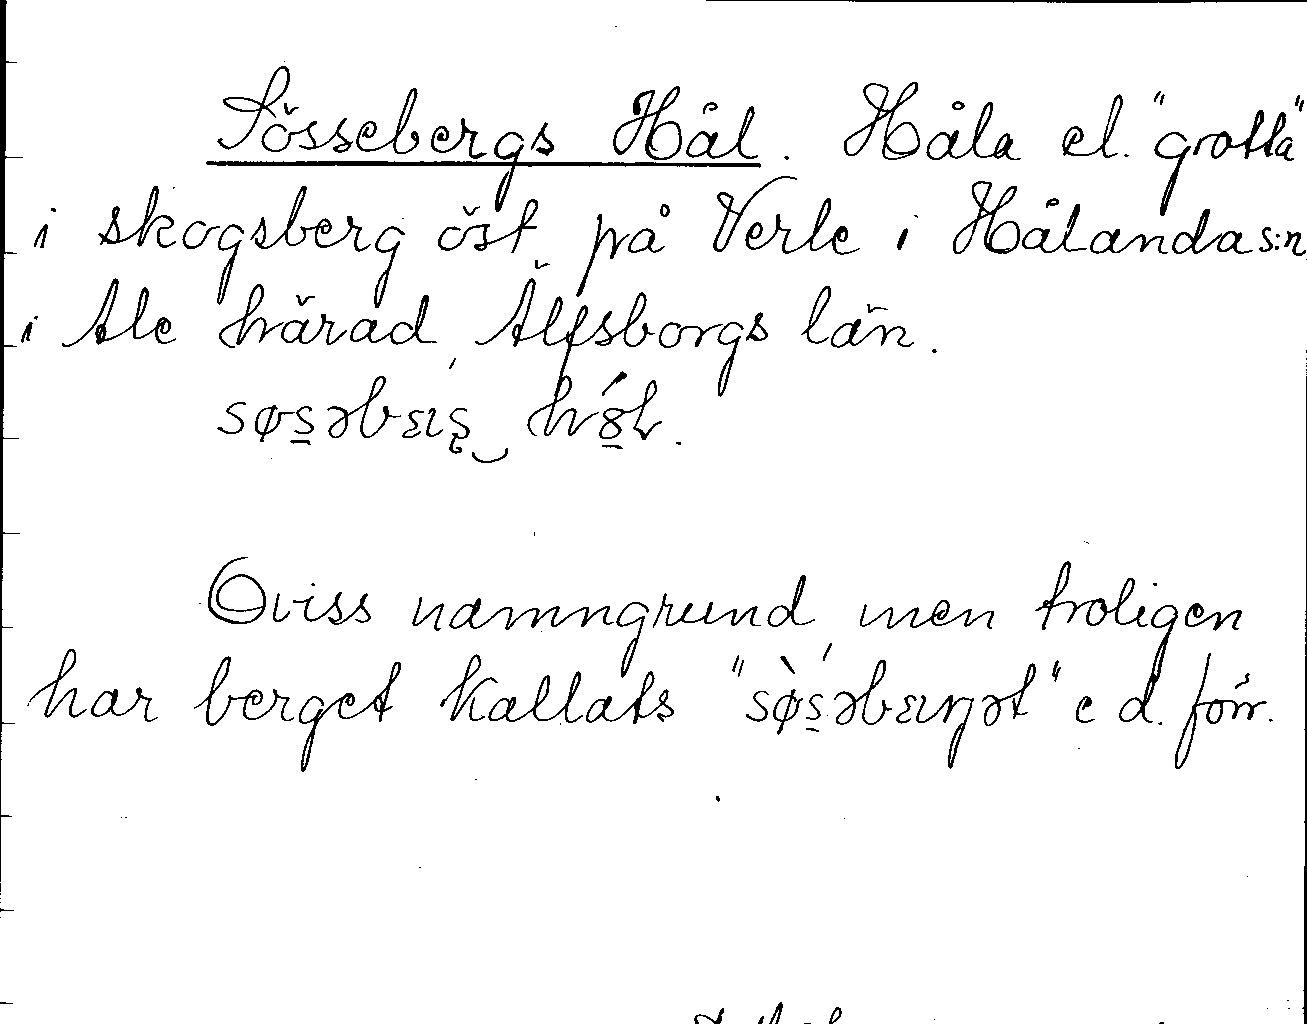 Sössebergs Hål. Håla el. "grotta"
i skogsberg öst på Verle i Hålanda s:n,
i Ale härad, Älfsborgs län.
Oviss namngrund, men troligen
har berget kallats e d. förr.